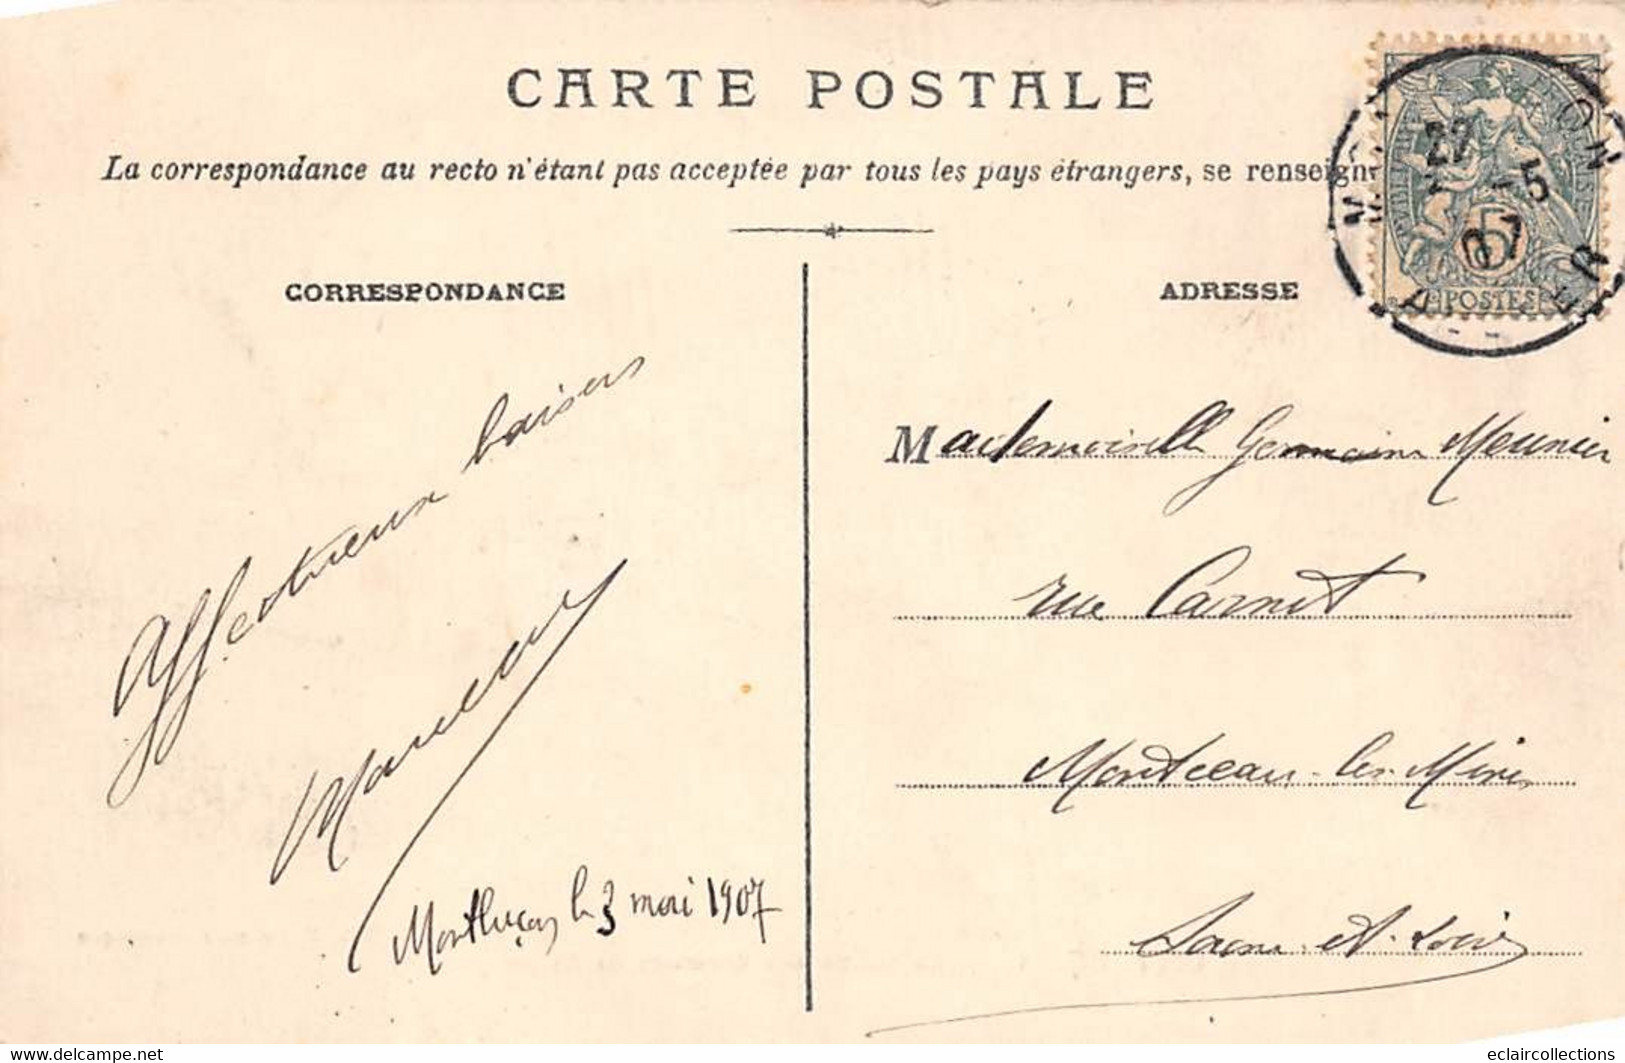 CARTE POSTALE
La correspondance au recto n'étant pas acceptée par tous les pays étrangers, se renseign
CORRESPONDANCE
Affectueux baisers
Montluçon le 3 mai 1907
ADRESSE
Mademoiselle Germaine Meunier
rue Carnot
Montceau-les-Mines
Saone-et-Loire
5
POSTES
-5
07
www.delcampe.net
eclaircollections